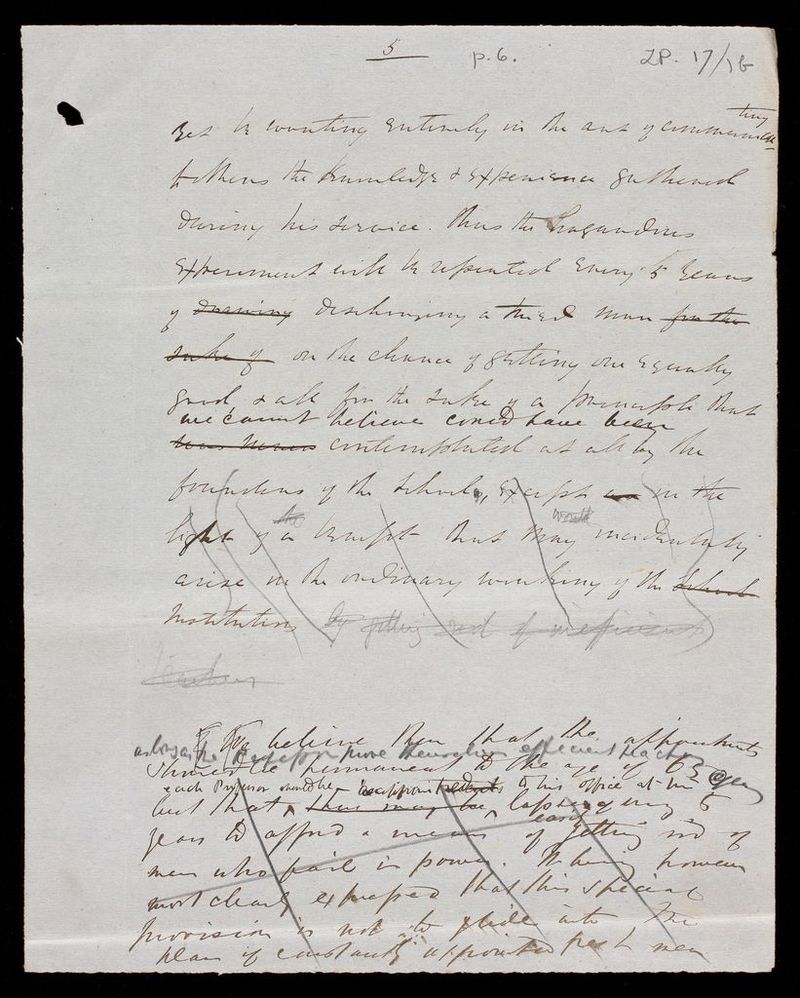 5
p. 6.
ZP. 17/1b
yet be wanting entirely in the art of communica
ting
to others the knowledge & experience gathered
during his service. Thus the hazardous
experiment will be repeated every 5 years
of drawing discharging a tried man for the
sake of on the chance of getting one equally
good & all for the sake of a principle that
we cannot believe could have been
contemplated at all by the
founders of the School, except as in the
the would
light of a benefit that may incidentally
arise in the ordinary working of the School
Institution by getting rid of inefficient
teachers
We believe then that the appointments
as long as the Professors prove themselves efficient teachers
should be permanent to the age of 65
each Professor should be reappointed to his office at the
but that there may be lapse of every 5
years to afford a means of getting rid of
easy
men who fail in power. It being however
most clearly expressed that this special
provision is not to glide into the
plan of constantly appointing fresh men